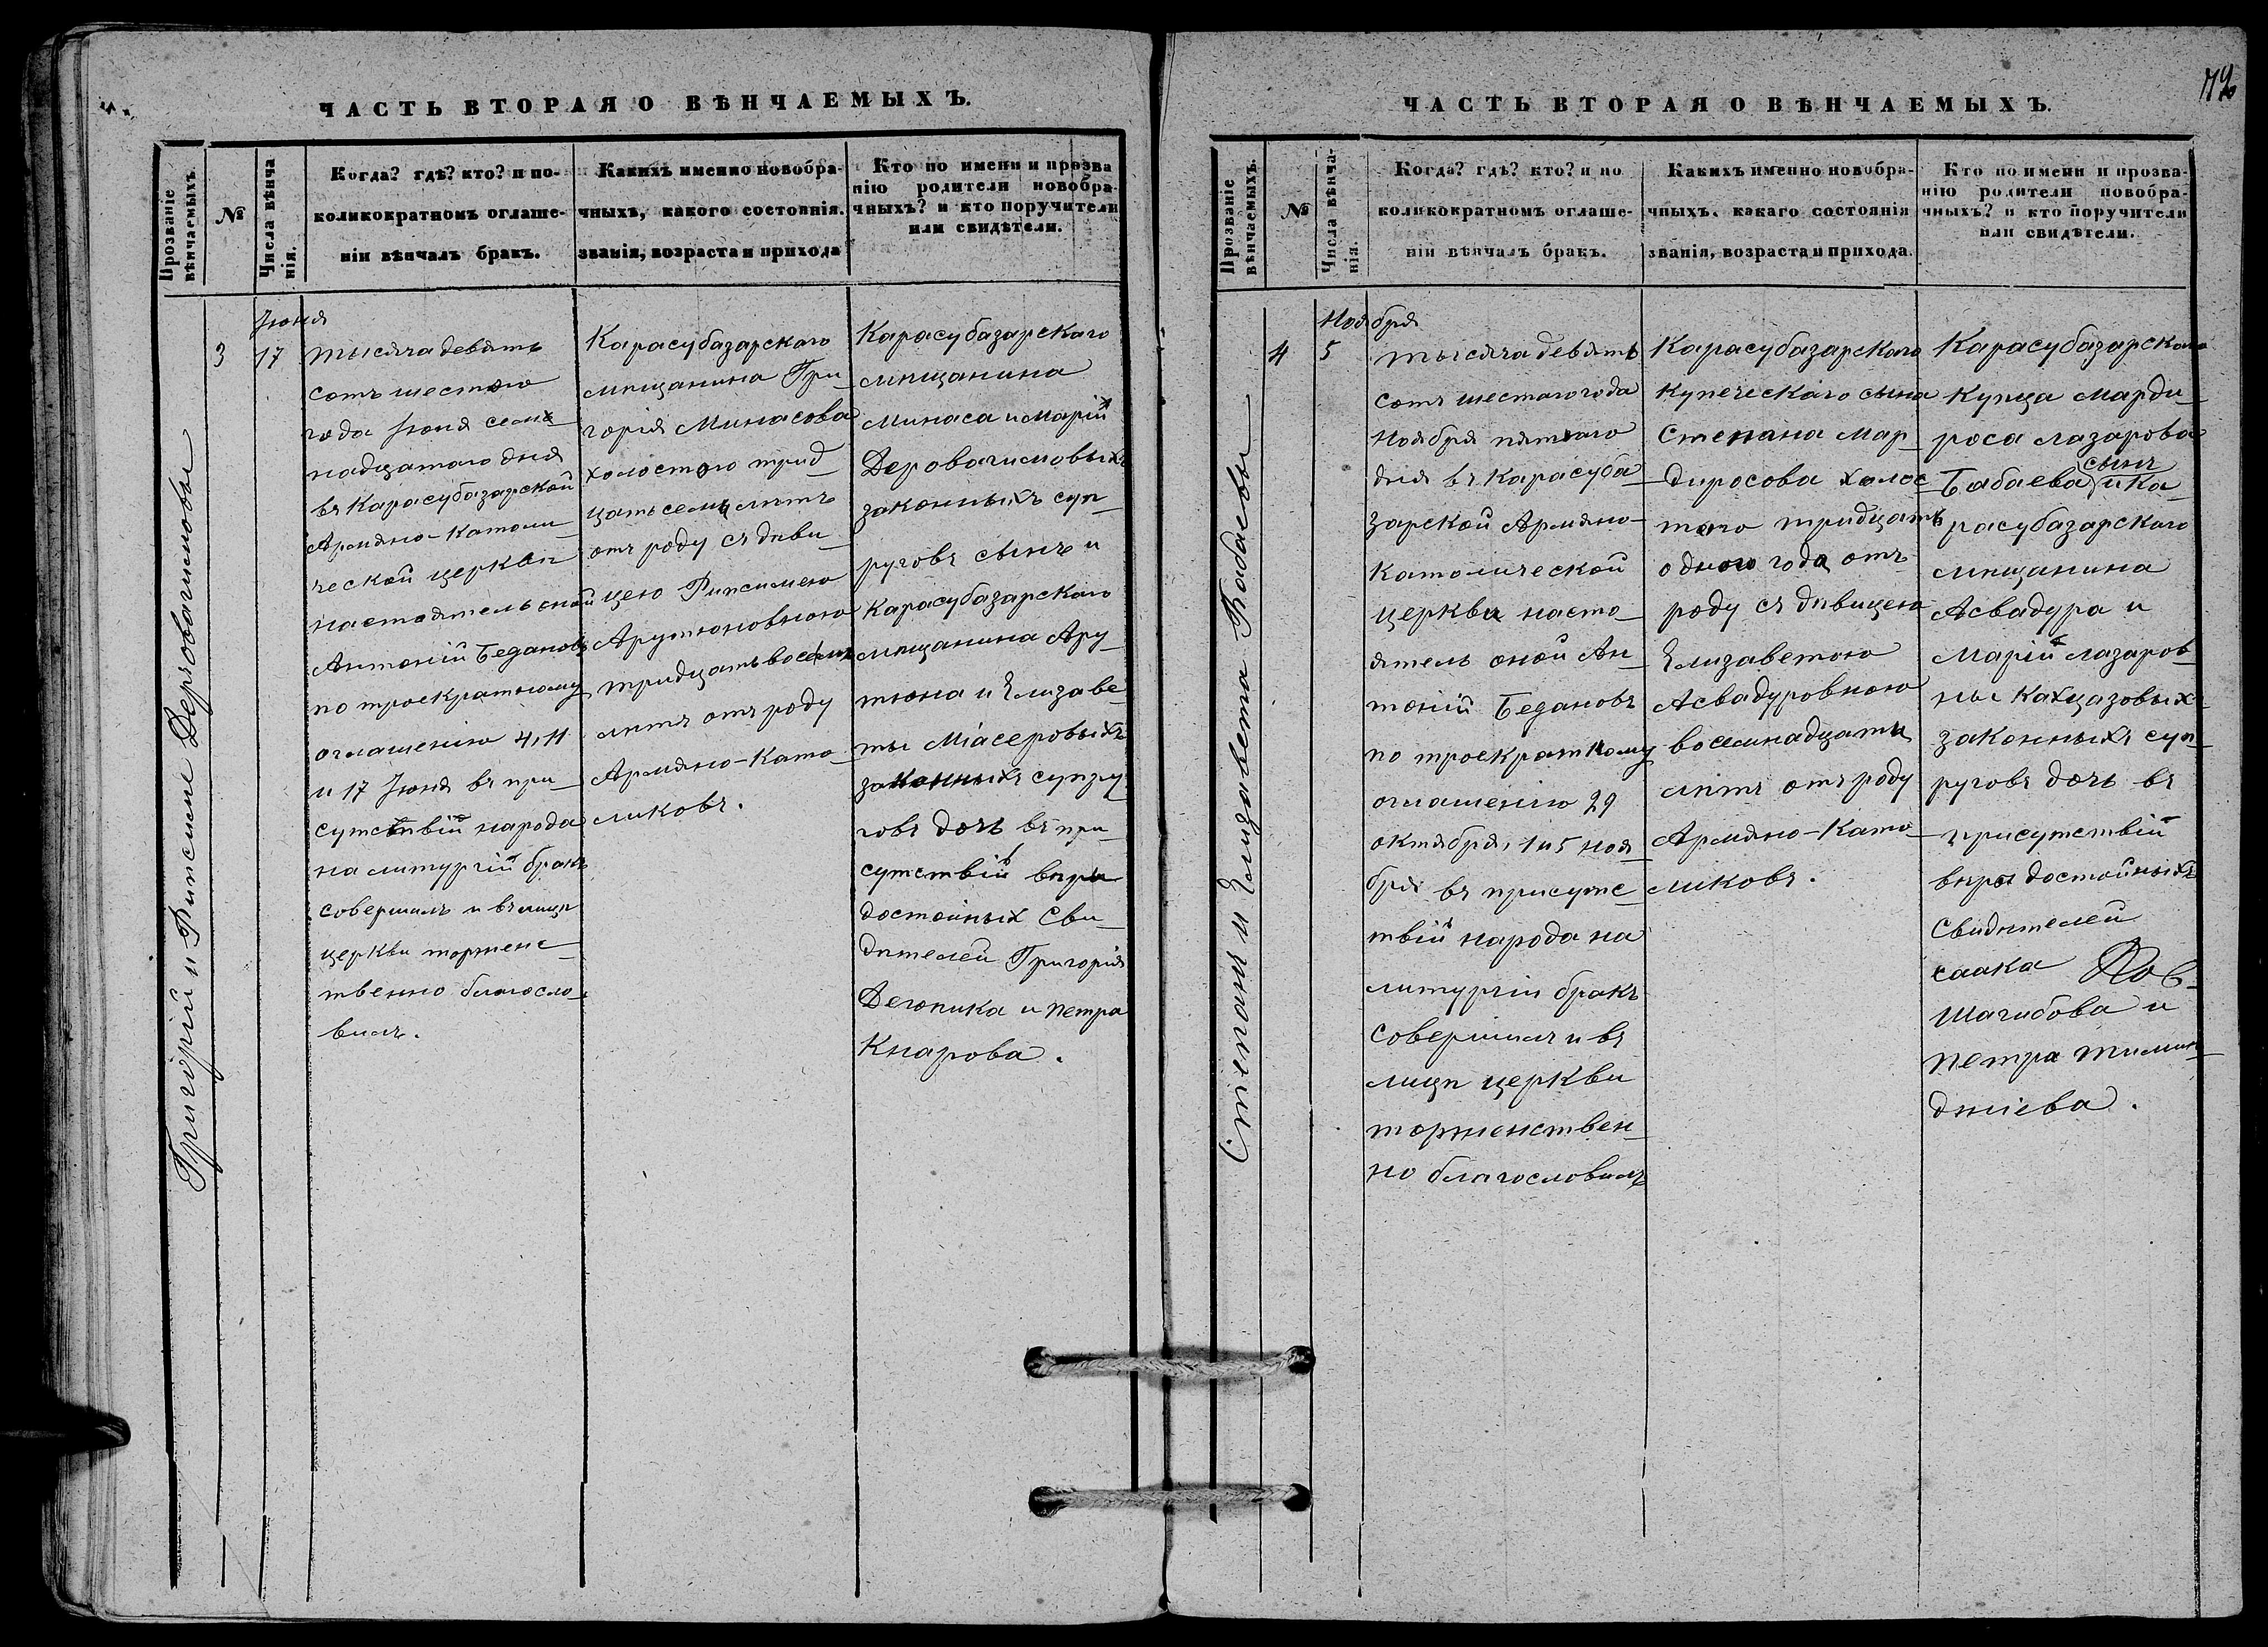 ЧАСТЬ ВТОРАЯ О ВѢНЧАЕМЫХЪ.
Прозваніе вѣнчаемыхъ.
№
Числа вѣнча
нія.
Когда? гдѣ? кто? и по-
коликократномъ оглаше-
ніи вѣнчалъ бракъ.
Какихъ именно новобра-
чныхъ, какого состоянія.
званія, возраста и прихода
Кто по имени и прозва
нію родители новобра-
чныхъ? и кто поручители
или свидѣтели.
Григорій и Рипсиме Дерговагимовы
3
Июня
17
тысяча девять
сотъ шестого
года Июня семь
надцатаго дня
въ Карасубазарской
Армяно-Католи
ческой церкви
настоятель оной
Антоній Бедановъ
по троекратному
оглашенію 4, 11
и 17 Июня въ при
сутствій народа
на литургій бракъ
совершилъ и въ лицѣ
церкви торжес
твенно благосло
вилъ.
Карасубазарскаго
мѣщанина Гри
горія Минасова
холостого трид
цать семь лѣтъ
отъ роду съ дѣви
цею Рипсимею
Арутюновною
тридцать восемь
лѣтъ отъ роду
Армяно-Като
ликовъ.
Карасубазарскаго
мѣщанина
Минаса и Марій
законныхъ суп
руговъ сынъ и
Карасубазарскаго
мѣщанина Ару
тюна и Елизаве
ты Міасеровыхъ
законныхъ супру
говъ дочь въ при
сутствій вѣры
достойныхъ Сви
дѣтелей Григорія
Дегопика и Петра
Кнарова.
ЧАСТЬ ВТОРАЯ О ВѢНЧАЕМЫХЪ.
Прозваніе
вѣнчаемыхъ.
№
Числа вѣнча-
нія.
Когда? гдѣ? кто? и по
коликократномъ оглаше-
ніи вѣнчалъ бракъ.
Какихъ именно новобра-
чныхъ, какаго состоянія
званія, возраста и прихода.
Кто по имени и прозва-
нію родители новобра-
чныхъ? и кто поручители
или свидѣтели.
Степанъ и Елизавета Бабаевы
4
Ноября
5
тысяча девять
сотъ шестаго года
Ноября пятаго
дня въ Карасуба
зарской Армяно-
Католической
церкви насто
ятель оной Ан
тоній Бедановъ
по троекратному
оглашенію 29
октября, 1 и 5 ноя
бря въ присутс
твій народа на
литургіи бракъ
совершилъ и въ
лицѣ церкви
торжествен
но благословилъ
Карасубазарскаго
купеческаго сына
Степана Мар
диросова холос
таго тридцать
одного года отъ
роду съ дѣвицею
Елизаветою
Асвадуровною
восемнадцать
лѣтъ отъ роду
Армяно-Като
ликовъ.
Карасубазарскаго
Купца Марди
роса Лазарова
Бабаева сынъ и Ка
расубазарскаго
мѣщанина
Асвадура и
Марій Лазаров
ны Кахцазовыхъ
законныхъ суп
руговъ дочь въ
присутствій
вѣры достойныхъ
Свидѣтелей
Саака
Шагибова и
Петра Тилин
джіева.